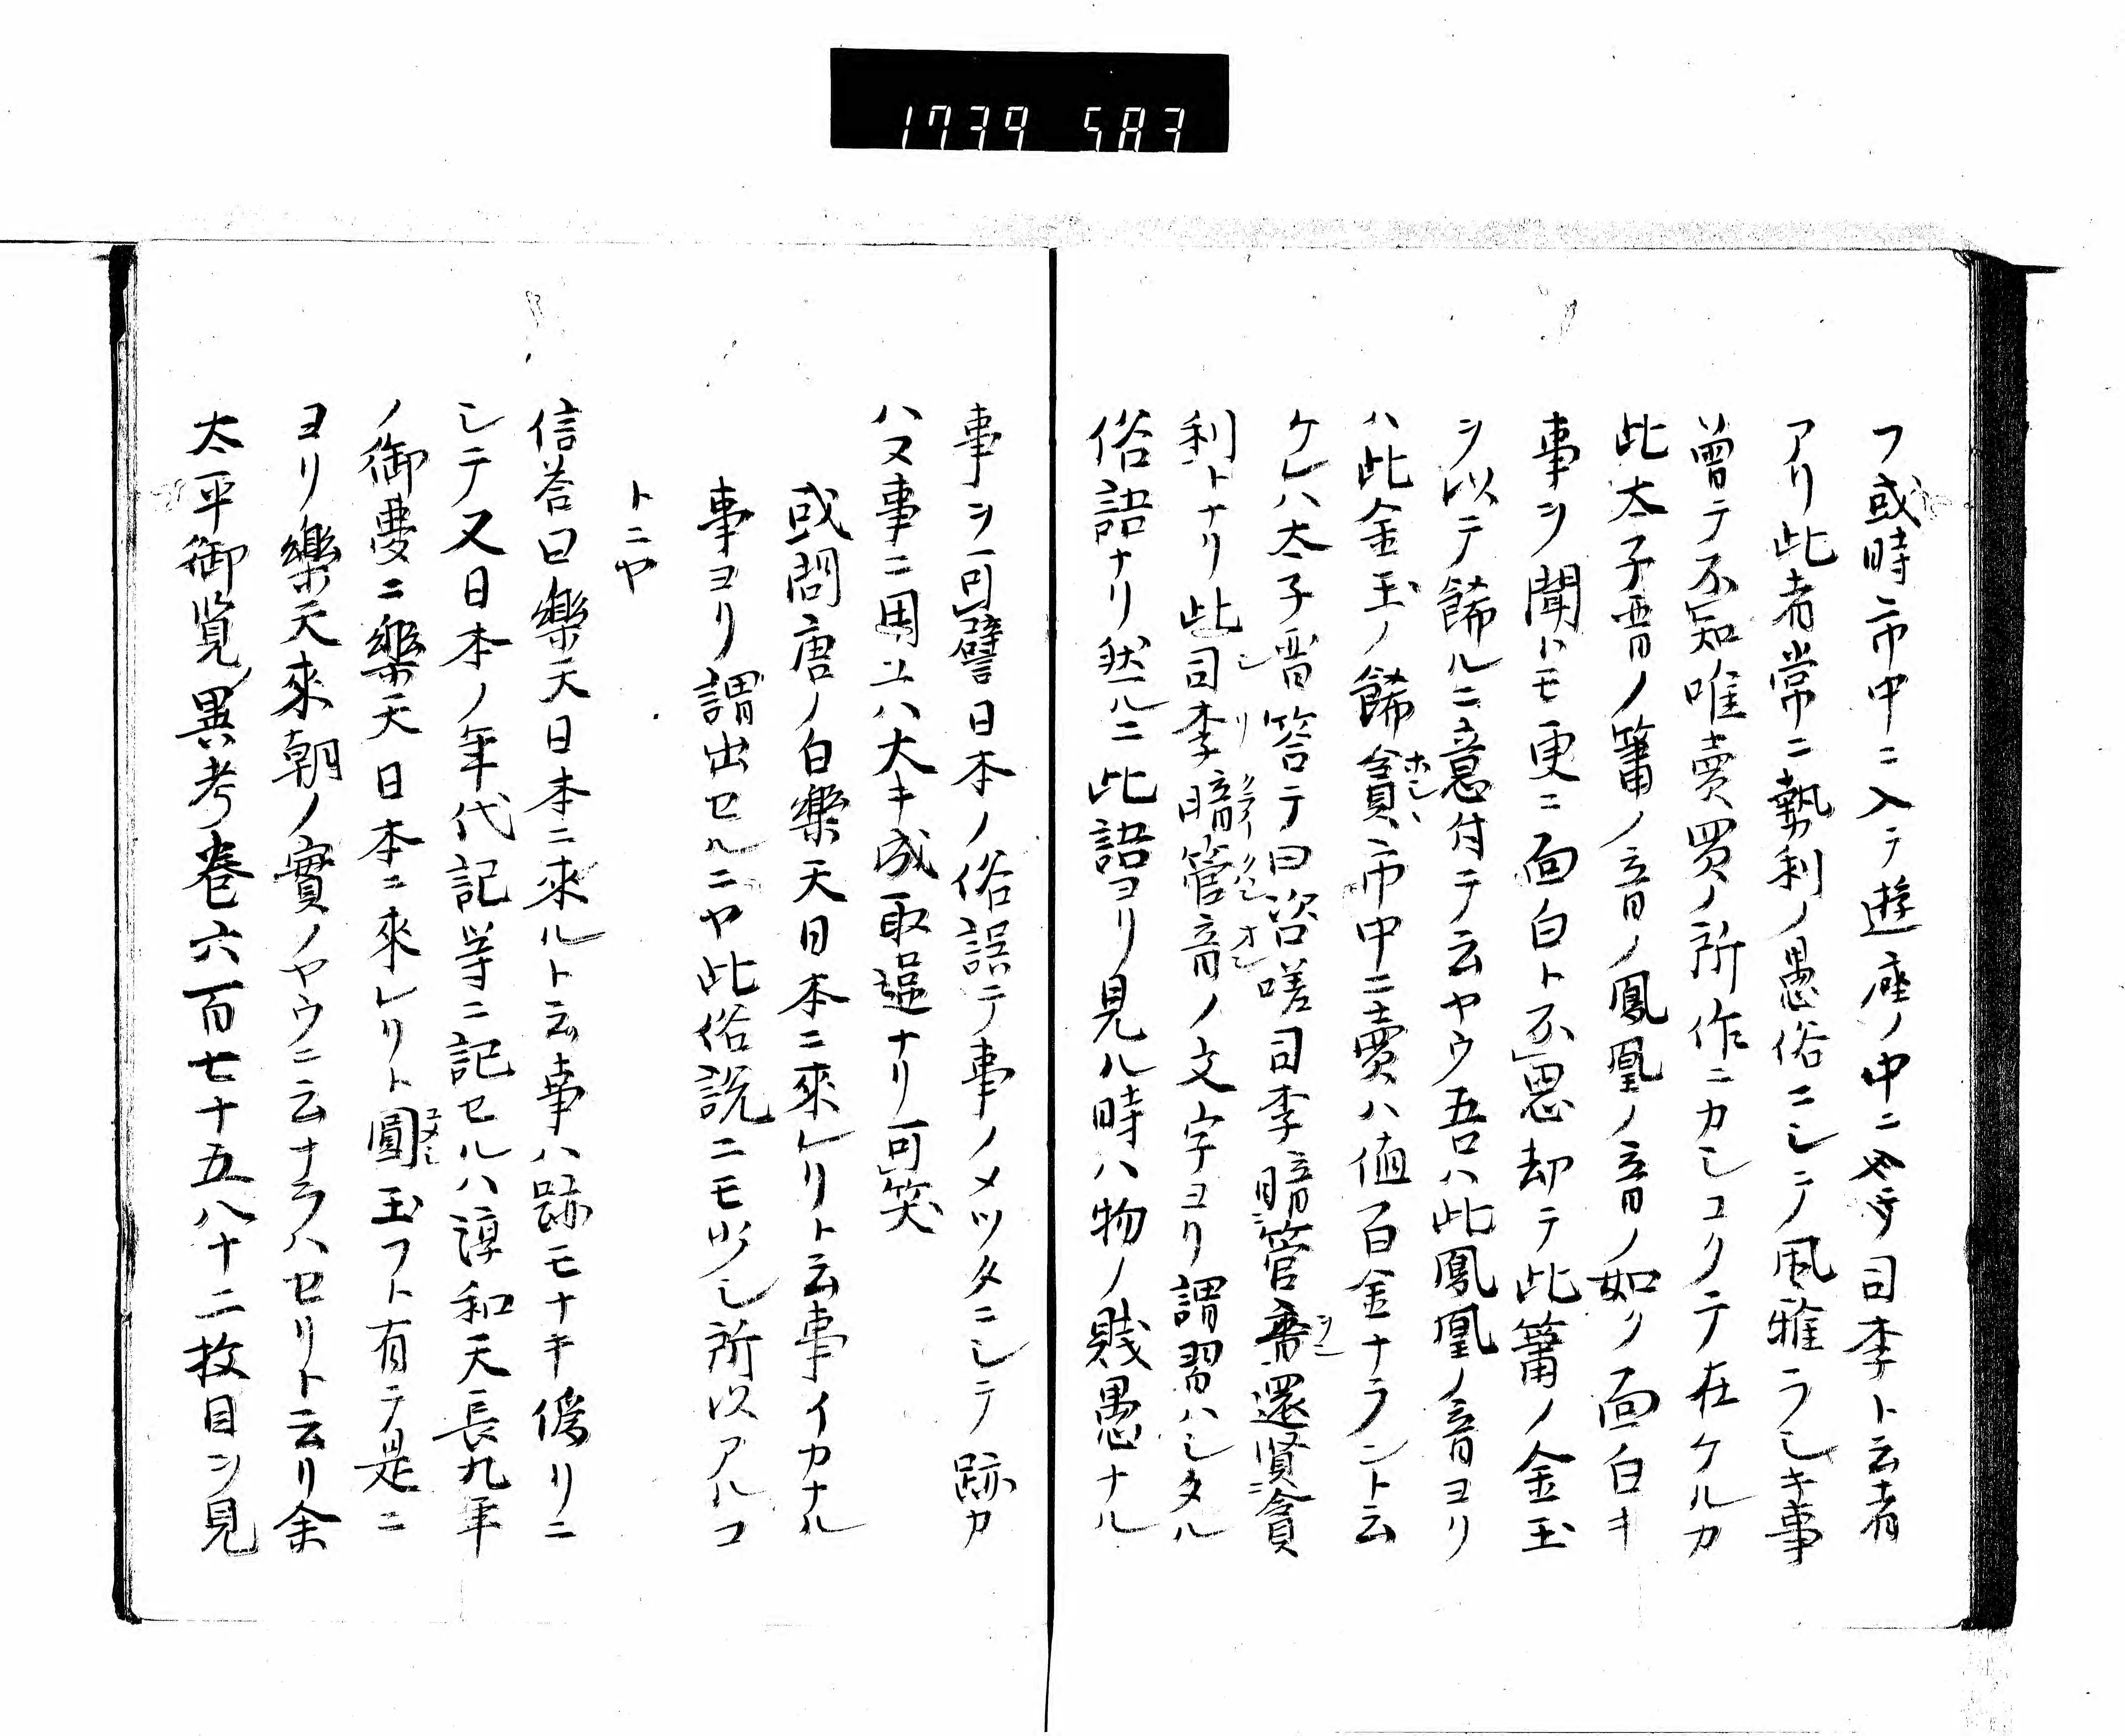 1739 583
フ或時市中ニ入テ遊座ノ中ニ司李ト云者
アリ此者常ニ執利ノ愚俗ニシテ風雅ラシキ事
曽テ不知唯賣買ノ所作ニカシコクテ在ケルカ
此太子晋ノ簫ノ音ノ鳳凰ノ音ノ如ク面白キ
事ヲ聞トモ更ニ面白ト不思却テ此簫ノ金玉
ヲ以テ餙ルニ意付テ云ヤウ吾ハ此鳳凰ノ音ヨリ
ハ此金玉ノ餙貪ホシ市中ニ賣ハ値百金ナラント云
ケレハ太子晋答テ曰咨嗟司李暗管還賢貪
利トナリ此司シ李リ暗クライ管音ノ文字ヨリ謂習ハシタル
俗語ナリ然ルニ此語ヨリ見ル時ハ物ノ賤愚ナル
事ヲ可譬日本ノ俗誤テ事ノメツタニシテ跡カ
ハヌ事ニ用ユハ大キ成取違ナリ可笑
或問唐ノ白樂天日本ニ來レリト云事イカナル
事ヨリ謂出セルニヤ此俗説ニモ少シ所以アルコ
トニヤ
信答曰樂天日本ニ來ルト云事ハ跡モナキ偽リニ
シテ又日本ノ年代記等ニ記セルハ淳和天長九年
ノ御夢ニ樂天日本ニ來レリト圓ユメミシ玉フト有テ是ニ
ヨリ樂天來朝ノ實ノヤウニ云ナラハセリト云リ余
太平御覧異考巻六百七十五八十二枚目ヲ見